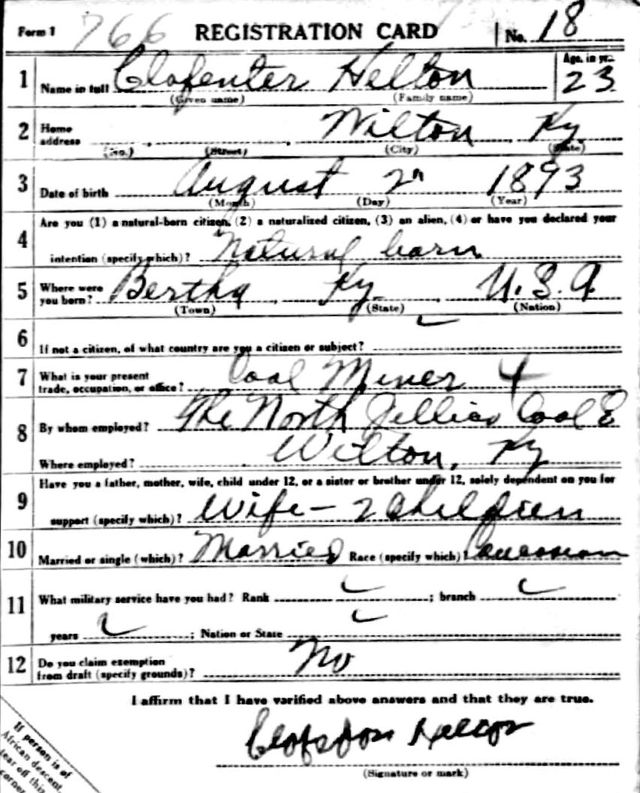 Form 1 766 REGISTRATION CARD No. 18
1 Name in full Clofenter Helton Age, in yrs. 23
(Given name) (Family name)
2 Home address Wilton Ky
(No.) (Street) (City) (State)
3 Date of birth August 2 1893
(Month) (Day) (Year)
4 Are you (1) a natural-born citizen, (2) a naturalized citizen, (3) an alien, (4) or have you declared your
intention (specify which)? Natural born
5 Where were you born? Bertha Ky U.S.A
(Town) (State) (Nation)
6 If not a citizen, of what country are you a citizen or subject?
7 What is your present trade, occupation, or office? Coal Miner
8 By whom employed? The North Jellico Coal
Where employed? Wilton, Ky
9 Have you a father, mother, wife, child under 12, or a sister or brother under 12, solely dependent on you for
support (specify which)? Wife - 2 Children
10 Married or single (which)? Married Race (specify which)? Caucasian
11 What military service have you had? Rank ; branch
years ; Nation or State
12 Do you claim exemption from draft (specify grounds)? No
I affirm that I have verified above answers and that they are true.
Helton
(Signature or mark)
If person is of
African descent,
tear off this
corner